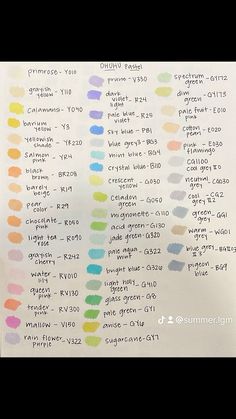 OHUHU Pastel
primrose - Y010
grayish yellow - Y110
calamansi - Y040
barium yellow - Y3
yellowish shade - Y8220
salmon pink - YR4
black brown - BR208
barely beige - R19
pear color - R29
chocolate pink - R050
light tea rose - R090
grayish cherry - R42
water lily - RV010
queen pink - RV130
tender pink - RV300
mallow - V150
rain flower purple - V322
prune - V330
dark violet light - R24
pale blue violet
sky blue - PB1
blue grey3 - BG3
mint blue - BG4
crystal blue - B110
crescent yellow - G030
celadon green - G50
mignonette - G110
acid green - G130
jade green - G320
pale aqua mint - G322
bright blue - G326
light holly green - G410
glass green - G8
pale green - GY1
anise - GY16
sugarcane - GY7
spectrum green - GY172
dim green - GY173
pale fruit pink - E010
cotton pearl - E020
pink flamingo - E030
CG1100
cool grey E0
neutral grey - CG030
cool grey - CG2
green grey - GG1
warm grey - WG01
blue grey 3
pigeon blue - BG9
@summer.lgm